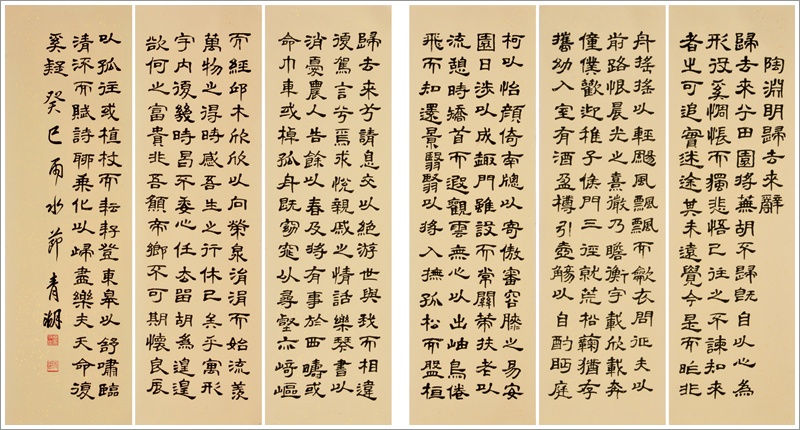 陶淵明歸去来辭
歸去来兮田園将蕪胡不歸既自以心為
形役奚惆悵而獨悲悟已往之不諫知来
者之可追實迷途其未遠覺今是而昨非
舟摇摇以輕颺風飄飄而龡衣問征夫以
前路恨晨光之熹微乃瞻衡宇載欣載奔
僮僕歡迎稚子候門三徑就荒松菊猶存
攜幼入室有酒盈樽引壺觴以自酌眄庭
柯以怡顏倚南牕以寄傲審容膝之易安
園日涉以成趣門雖設而常關策扶老以
流憩時矯首而遐觀雲無心以出岫鳥倦
飛而知還景翳翳以将入撫孤松而盤桓
歸去来兮請息交以絕游世與我而相違
復駕言兮焉求悅親戚之情話樂琴書以
消憂農人告餘以春及将有事於西疇或
命巾車或棹孤舟既窈窕以尋壑亦崎嶇
而經邱木欣欣以向榮泉涓涓而始流羨
萬物之得時感吾生之行休已矣乎寓形
宇内復幾時曷不委心任去留胡為遑遑
欲何之富貴非吾願帝鄉不可期懷良辰
以孤往或植杖而耘耔登東皋以舒嘯臨
清流而賦詩聊乘化以歸盡樂夫天命復
奚疑 癸巳雨水節 青湖